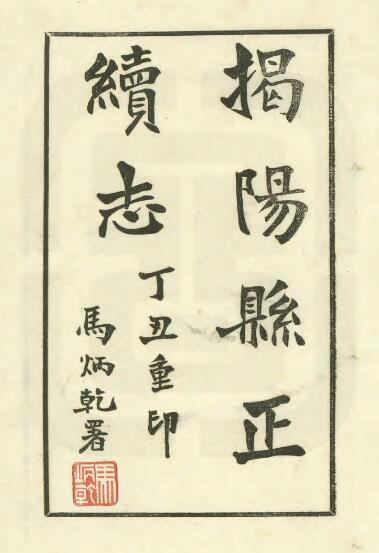 揭陽縣正
續志
丁丑重印
馬炳乾署
馬炳乾